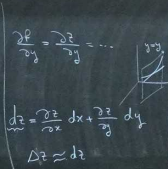 ∂f/∂y = ∂z/∂y = ...
y=y₀
dz = ∂z/∂x dx + ∂z/∂y dy
Δz ≈ dz